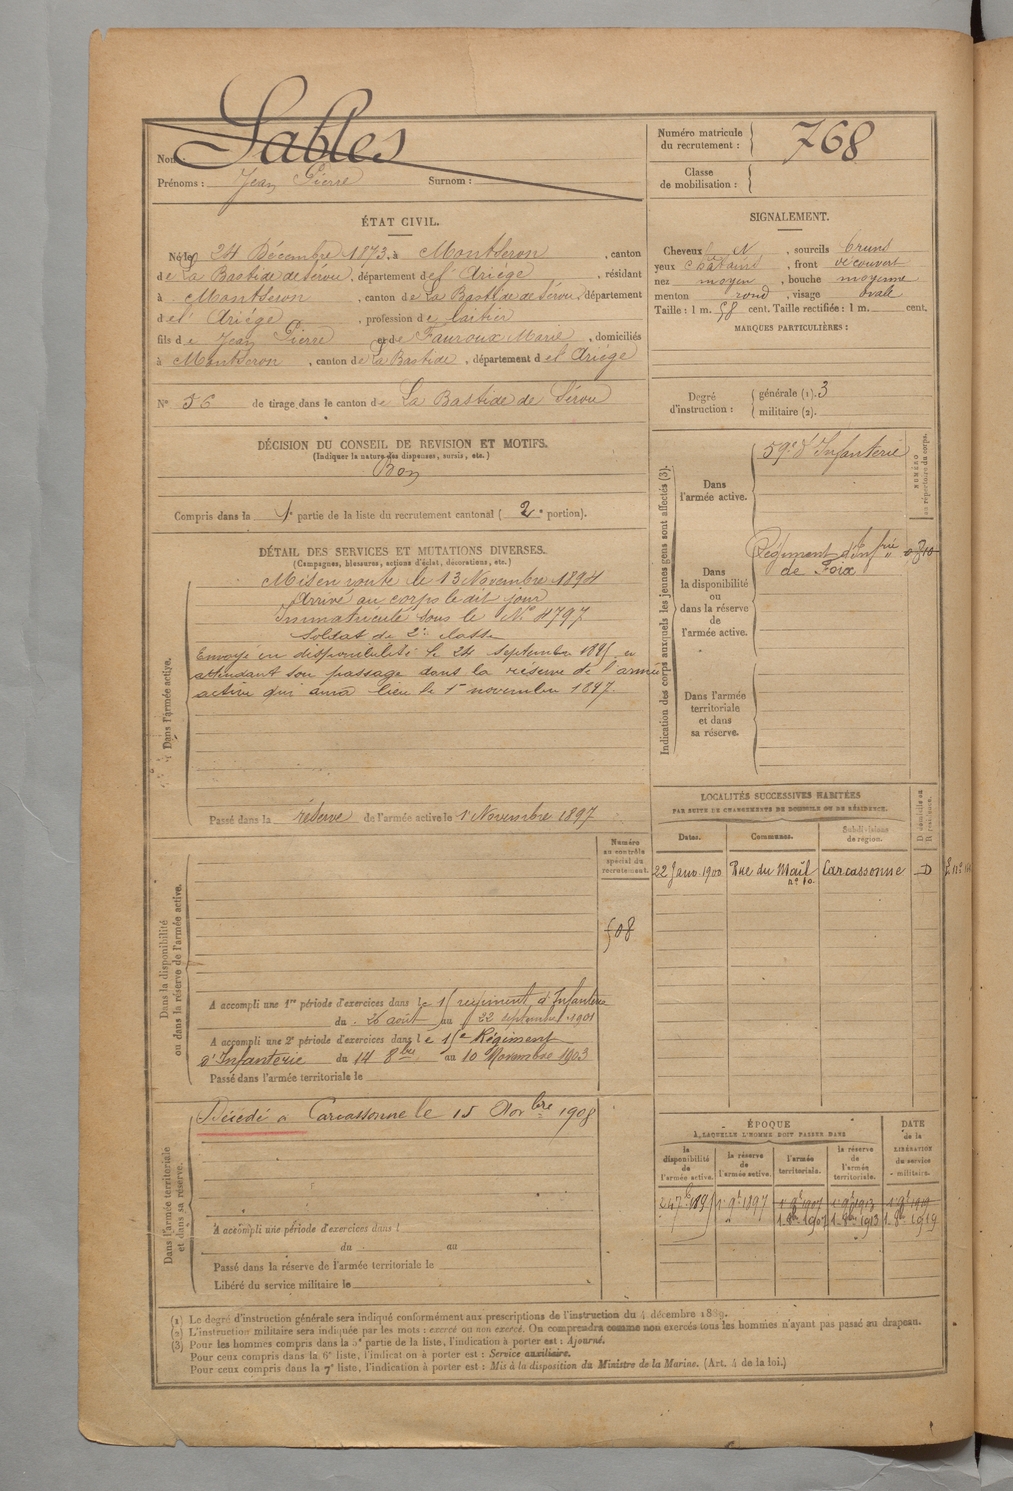 Nom : Sables
Prénoms : Jean Pierre Surnom :
Numéro matricule du recrutement : 768
Classe de mobilisation :
ÉTAT CIVIL.
Né le 24 Décembre 1873, à Montseron , canton
de La Bastide de Sérou, département de l'Ariège , résidant
à Montseron , canton de La Bastide de Sérou, département
de l'Ariège , profession de laitier
fils de Jean Pierre et de Fauroux Marie , domiciliés
à Montseron , canton de La Bastide , département de l'Ariège
N° 56 de tirage dans le canton de La Bastide de Sérou
SIGNALEMENT.
Cheveux N , sourcils bruns
yeux châtains , front découvert
nez moyen , bouche moyenne
menton rond , visage ovale
Taille : 1 m. 58 cent. Taille rectifiée : 1 m. cent.
MARQUES PARTICULIÈRES :
Degré d'instruction : générale (1). 3
militaire (2).
DÉCISION DU CONSEIL DE REVISION ET MOTIFS.
(Indiquer la nature des dispenses, sursis, etc.)
Bon
Compris dans la 1e partie de la liste du recrutement cantonal ( 2e portion).
DÉTAIL DES SERVICES ET MUTATIONS DIVERSES.
(Campagnes, blessures, actions d'éclat, décorations, etc.)
Dans l'armée active.
Mis en route le 13 Novembre 1894
Arrivé au corps le dit jour
Immatriculé sous le N° 4797
Soldat de 2e classe
Envoyé en disponibilité le 24 septembre 1895, en
attendant son passage dans la réserve de l'armée
active qui aura lieu le 1er novembre 1897.
Passé dans la réserve de l'armée active le 1er Novembre 1897
Indication des corps auxquels les jeunes gens sont affectés (3).
NUMÉRO au répertoire du corps.
Dans l'armée active.
59e d'Infanterie
Dans la disponibilité ou dans la réserve de l'armée active.
Régiment d'Infrie
de Foix
Dans l'armée territoriale et dans sa réserve.
LOCALITÉS SUCCESSIVES HABITÉES
PAR SUITE DE CHANGEMENTS DE DOMICILE OU DE RÉSIDENCE.
Dates. Communes. Subdivisions de région. D domicile ou R résidence.
22 Janv. 1900 Rue du Mail n° 10. Carcassonne D
Dans la disponibilité ou dans la réserve de l'armée active.
Numéro au contrôle spécial du recrutement.
508
A accompli une 1re période d'exercices dans le 15 régiment d'Infanterie
du 26 août au 22 septembre 1901
A accompli une 2e période d'exercices dans le 15e Régiment
d'Infanterie du 14 8bre au 10 Novembre 1903
Passé dans l'armée territoriale le
Dans l'armée territoriale et dans sa réserve.
Décédé à Carcassonne le 15 Novbre 1908
A accompli une période d'exercices dans l
du au
Passé dans la réserve de l'armée territoriale le
Libéré du service militaire le
ÉPOQUE
À LAQUELLE L'HOMME DOIT PASSER DANS
DATE de la LIBÉRATION du service militaire.
la disponibilité de l'armée active. la réserve de l'armée active. l'armée territoriale. la réserve de l'armée territoriale.
24 7bre 1895 1er 9bre 1897 1er 9bre 1907 1er 9bre 1913 1er 9bre 1919
1er 8bre 1907 1er 8bre 1913 1er 8bre 1919
(1) Le degré d'instruction générale sera indiqué conformément aux prescriptions de l'instruction du 4 décembre 1889.
(2) L'instruction militaire sera indiquée par les mots : exercé ou non exercé. On comprendra comme non exercés tous les hommes n'ayant pas passé au drapeau.
(3) Pour les hommes compris dans la 5e partie de la liste, l'indication à porter est : Ajourné.
Pour ceux compris dans la 6e liste, l'indication à porter est : Service auxiliaire.
Pour ceux compris dans la 7e liste, l'indication à porter est : Mis à la disposition du Ministre de la Marine. (Art. 4 de la loi.)